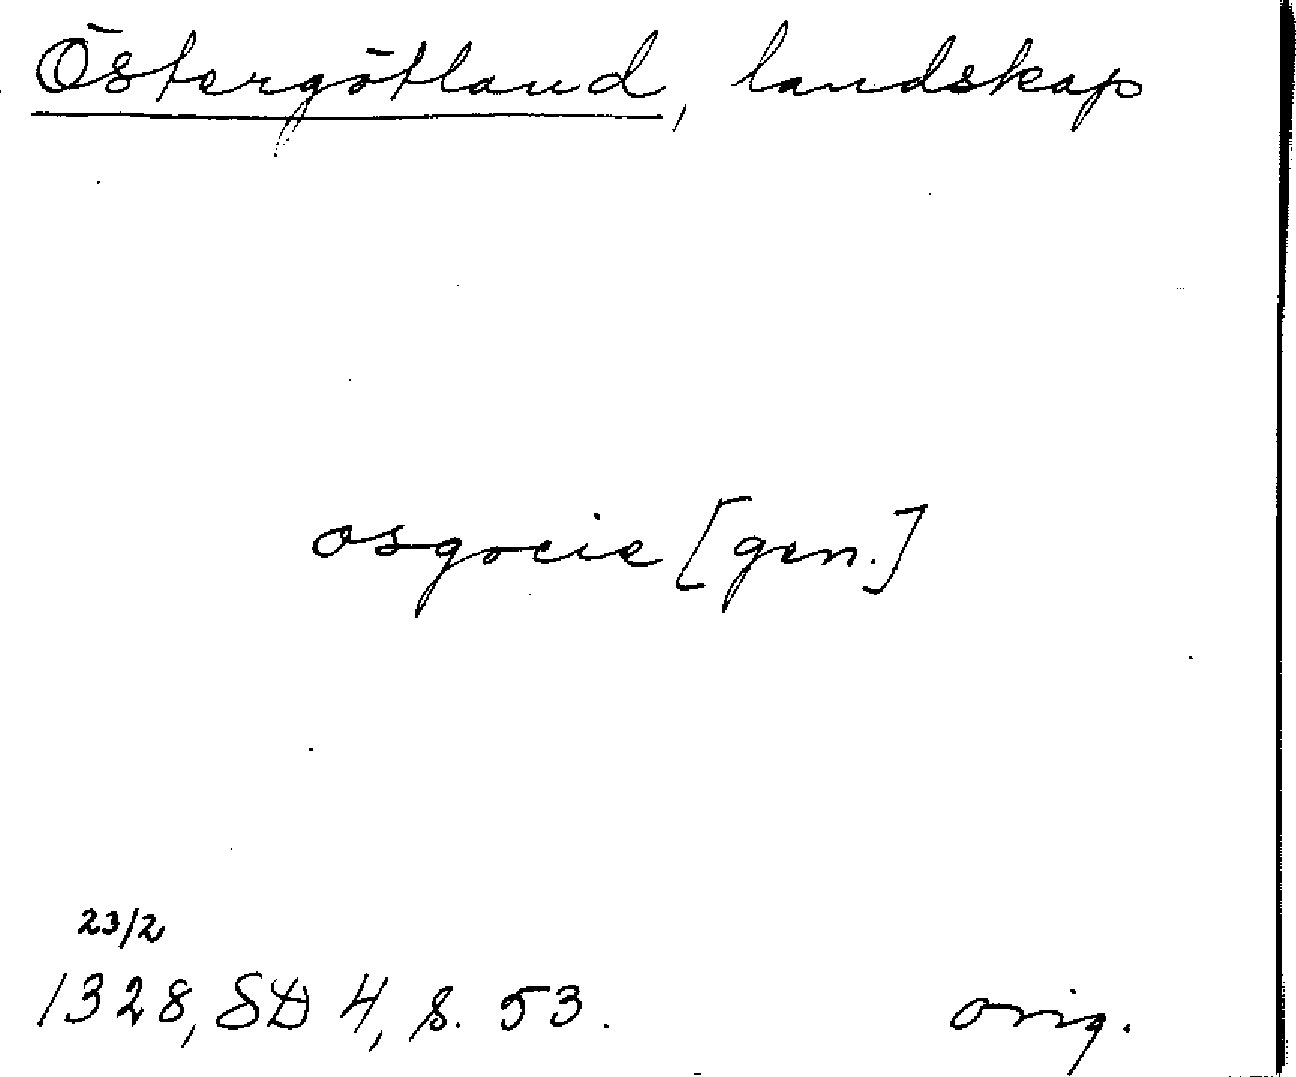 Östergötland, landskap
osgocie [gen.]
23/2
1328, SD 4, s. 53.
orig.